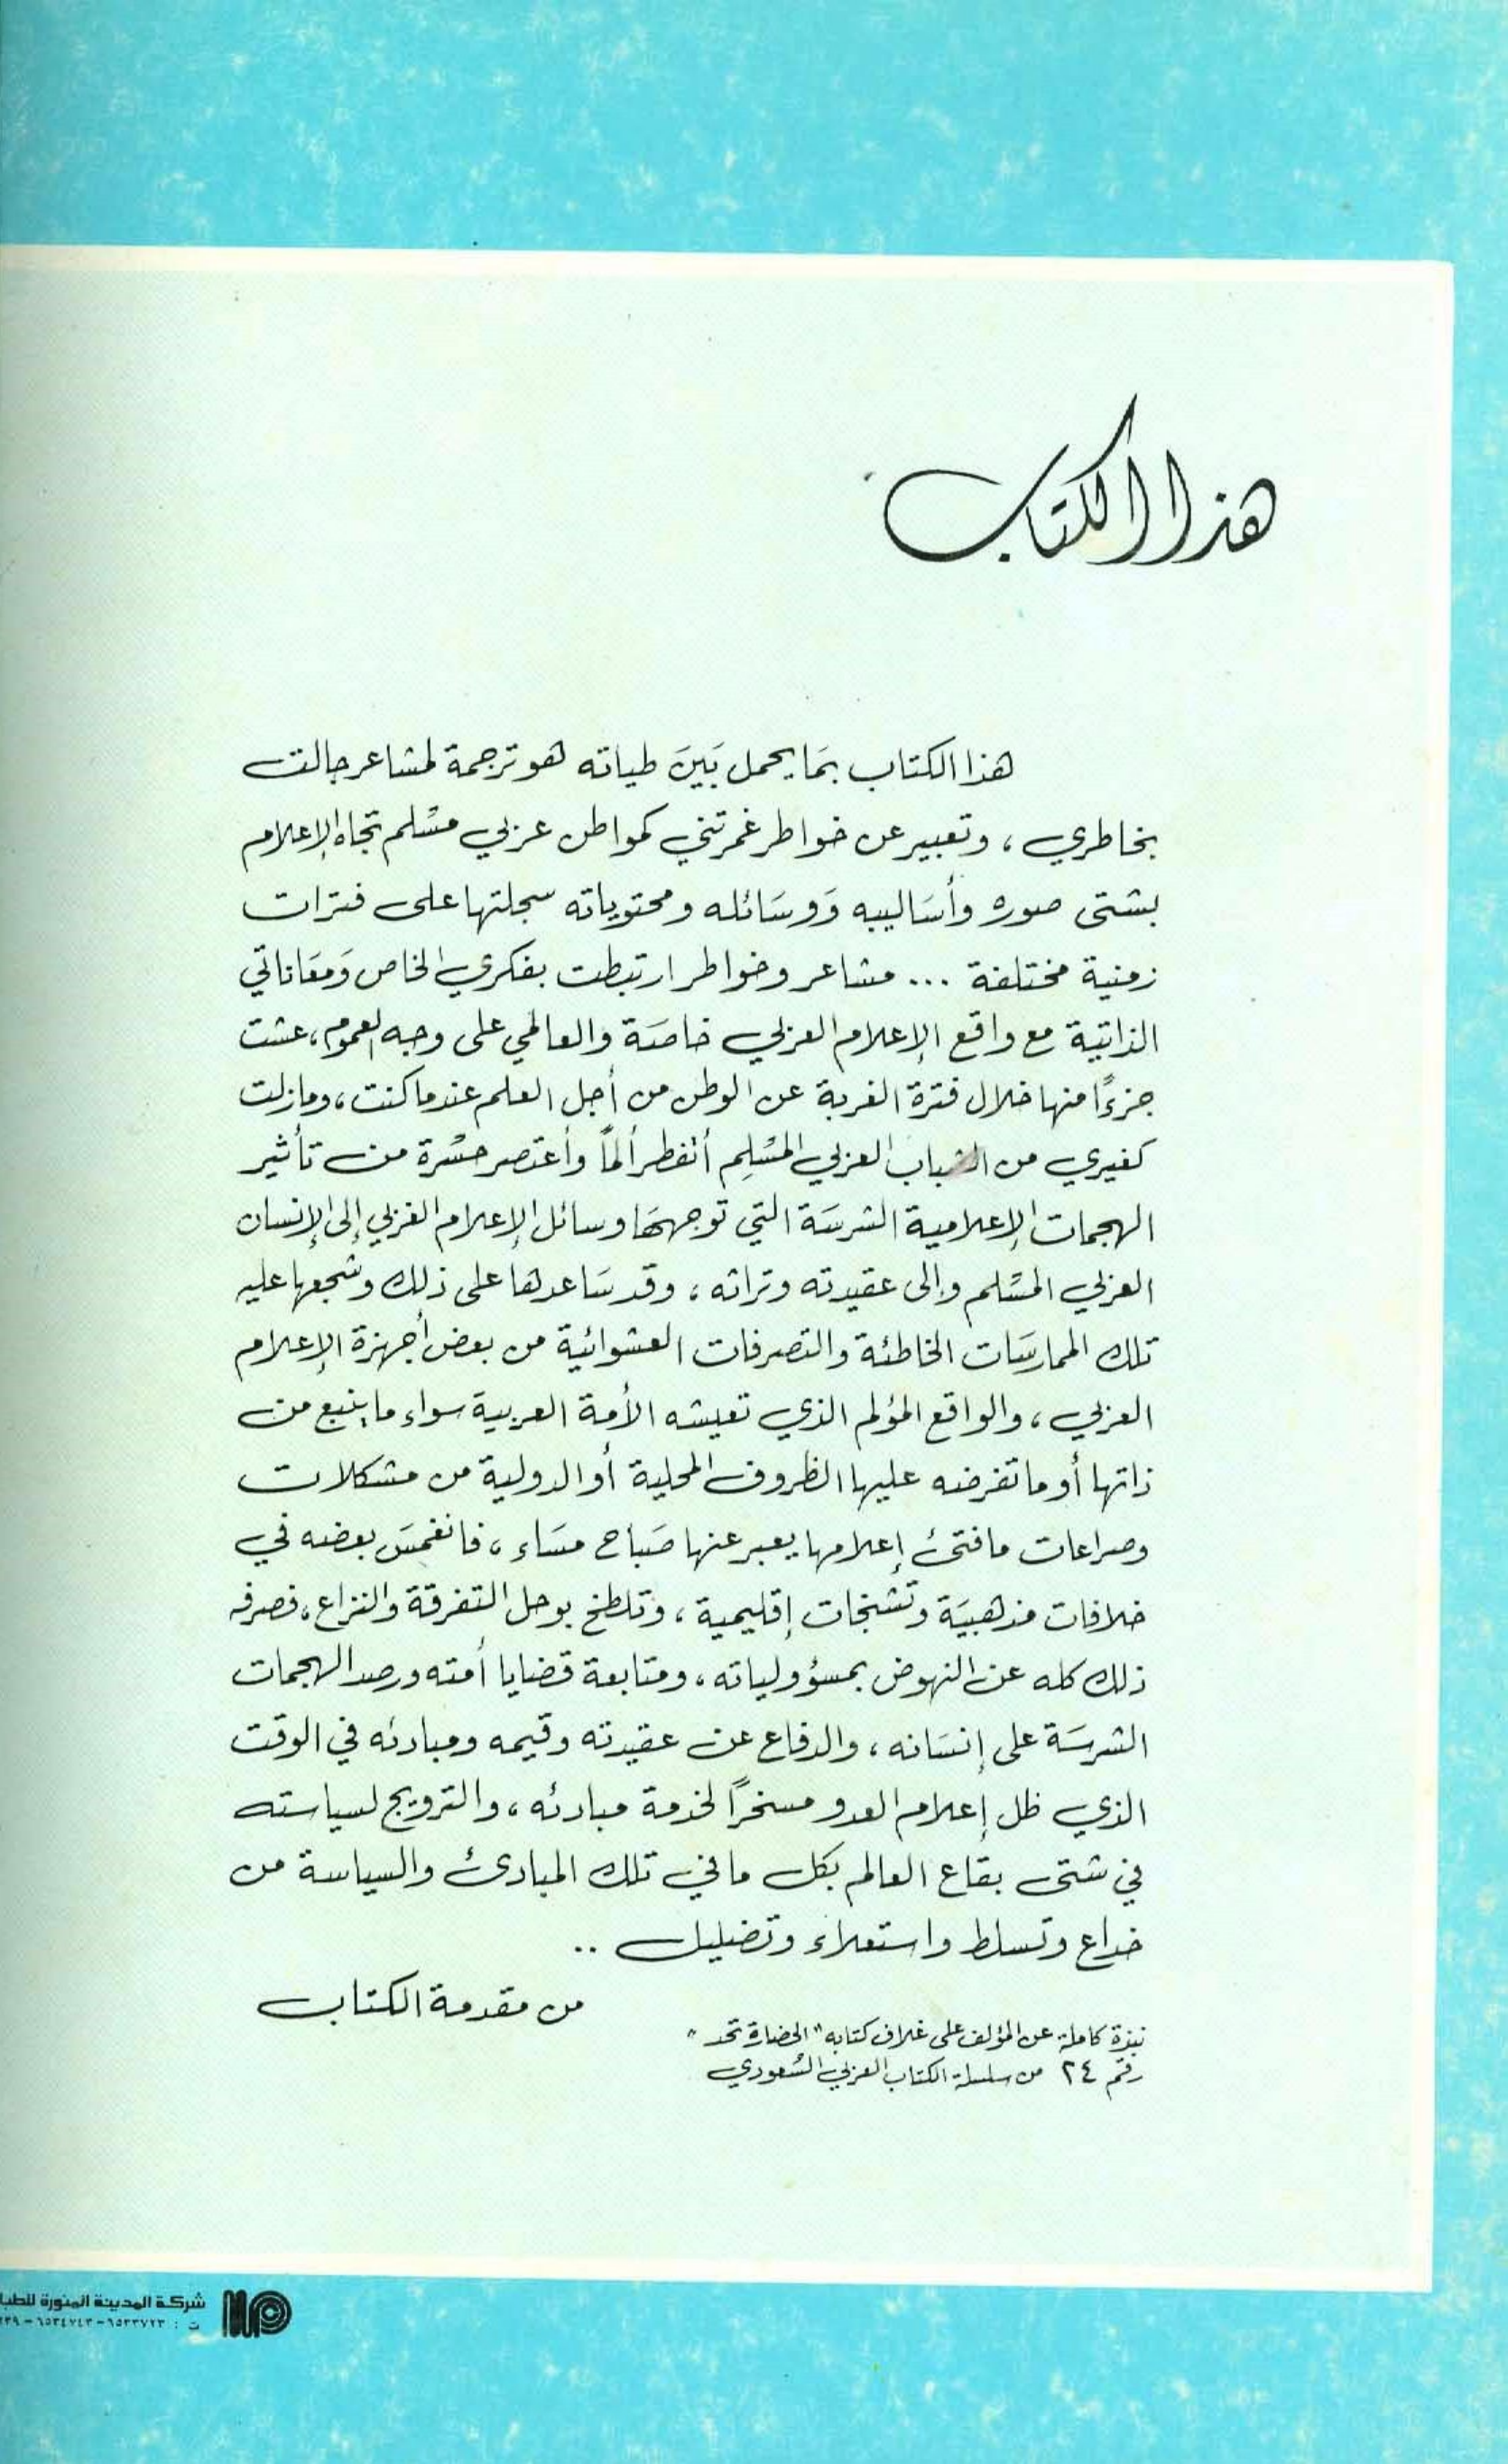 هذا الكتاب
هذا الكتاب بمَا يحمل بَينَ طياته هو ترجمة لمشاعر جالت
بخاطري ، وتعبير عن خواطر غمرتني كمواطن عربي مسْلم تجاه الإعلام
بشتى صوره وأسَاليبه وَوسَائله ومحتوياته سجلتها على فترات
زمنية مختلفة ... مشاعر وخواطر ارتبطت بفكري الخاص وَمعَاناتي
الذاتية مع واقع الإعلام العربي خاصَة والعالمي على وجه العموم ، عشت
جزءًا منها خلال فترة الغربة عن الوطن من أجل العلم عندما كنت ، ومازلت
كغيري من الشباب العربي المسْلِم أتفطر ألماً وأعتصر حسْرة من تأثير
الهجمات الإعلامية الشرسَة التي توجههَا وسائل الإعلام الغربي إلى الإنسان
العربي المسْلم وإلى عقيدته وتراثه ، وقد سَاعدها على ذلك وشجعها عليه
تلك الممارسَات الخاطئة والتصرفات العشوائية من بعض أجهزة الإعلام
العربي ، والواقع المؤلم الذي تعيشه الأمة العربية سواء ما ينبع من
ذاتها أو ما تفرضه عليها الظروف المحلية أو الدولية من مشكلات
وصراعات مافتئ إعلامها يعبر عنها صَباح مسَاء ، فانغمسَ بعضه في
خلافات مذهبيَة وتشنجات إقليمية ، وتلطخ بوحل التفرقة والنزاع ، فصرفه
ذلك كله عن النهوض بمسؤولياته ، ومتابعة قضايا أمته ورصد الهجمات
الشرسَة على إنسَانه ، والدفاع عن عقيدته وقيمه ومبادئه في الوقت
الذي ظل إعلام العدو مسخراً لخدمة مبادئه ، والترويج لسياسته
في شتى بقاع العالم بكل مافي تلك المبادئ والسياسة من
خداع وتسلط واستعلاء وتضليل ..
من مقدمة الكتاب
نبذة كاملة عن المؤلف على غلاف كتابه "الحضارة تحد"
رقم ٢٤ من سلسلة الكتاب العربي السْعودي
شركة المدينة المنورة للطبا
ت : ٦٥٣٣٧٢٣ - ٦٥٣٤٧٤٣ - ٢٣٩